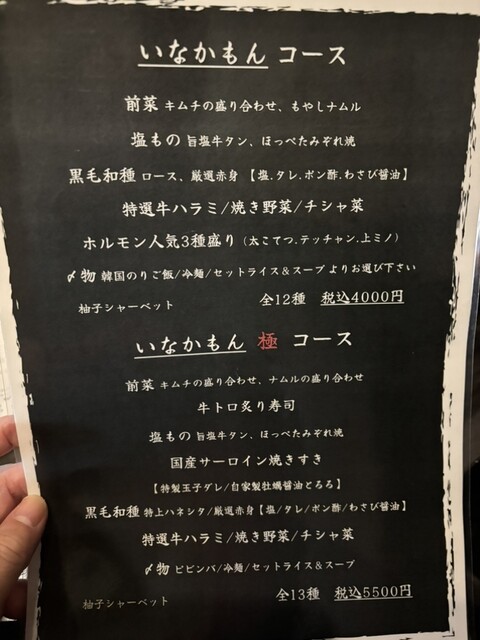 いなかもん コース
前菜 キムチの盛り合わせ、もやしナムル
塩もの 旨塩牛タン、ほっぺたみぞれ焼
黒毛和種 ロース、厳選赤身 【塩.タレ.ポン酢.わさび醤油】
特選牛ハラミ/焼き野菜/チシャ菜
ホルモン人気3種盛り（太こてつ.テッチャン.上ミノ）
〆物 韓国のりご飯/冷麺/セットライス＆スープ よりお選び下さい
柚子シャーベット 全12種 税込4000円
いなかもん 極 コース
前菜 キムチの盛り合わせ、ナムルの盛り合わせ
牛トロ炙り寿司
塩もの 旨塩牛タン、ほっぺたみぞれ焼
国産サーロイン焼きすき
【特製玉子ダレ/自家製牡蠣醤油とろろ】
黒毛和種 特上ハネシタ/厳選赤身【塩/タレ/ポン酢/わさび醤油】
特選牛ハラミ/焼き野菜/チシャ菜
〆物 ビビンバ/冷麺/セットライス＆スープ
柚子シャーベット 全13種 税込5500円